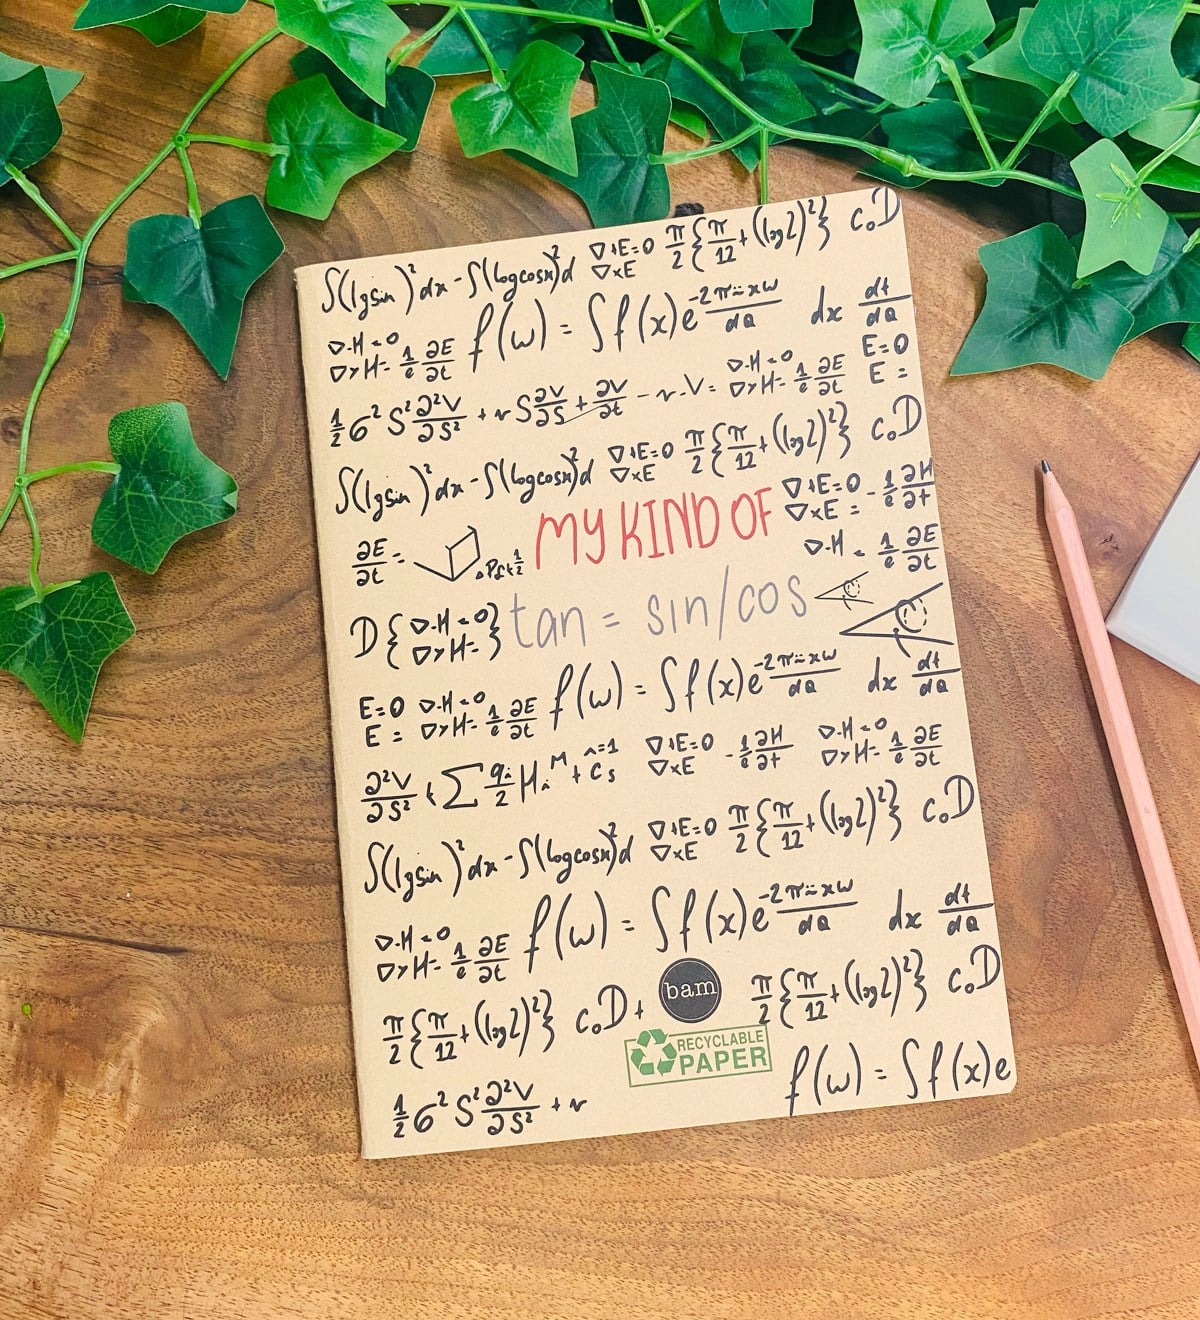 ∫(lgsin )²dx - ∫(logcosx)²d ∇+E=0 ∇×E π/2{π/12+(log2)²} c.D
∇·H=0 ∇×H= 1/c ∂E/∂t f(ω) = ∫f(x)e^-2πixω/dQ dx dt/dQ
1/2 6² S² ∂²V/∂S² + r S ∂V/∂S + ∂V/∂t - r·V= ∇·H=0 ∇×H= 1/c ∂E/∂t E=0 E =
∫(lgsin )²dx - ∫(logcosx)²d ∇+E=0 ∇×E π/2{π/12+(log2)²} c.D
MY KIND OF ∇+E=0 ∇×E = - 1/c ∂H/∂t
∂E/∂t = ∇·H = 1/c ∂E/∂t
D{∇·H=0 ∇×H=} tan = sin/cos
E=0 E = ∇·H=0 ∇×H= 1/c ∂E/∂t f(ω) = ∫f(x)e^-2πixω/dQ dx dt/dQ
∂²V/∂S² + ∑ qi/2 Hi^M + Cs ^=1 ∇+E=0 ∇×E - 1/c ∂H/∂t ∇·H=0 ∇×H= 1/c ∂E/∂t
∫(lgsin )²dx - ∫(logcosx)²d ∇+E=0 ∇×E π/2{π/12+(log2)²} c.D
∇·H=0 ∇×H= 1/c ∂E/∂t f(ω) = ∫f(x)e^-2πixω/dQ dx dt/dQ
π/2{π/12+(log2)²} c.D+ bam π/2{π/12+(log2)²} c.D
RECYCLABLE
PAPER
f(ω) = ∫f(x)e
1/2 6² S² ∂²V/∂S² + r